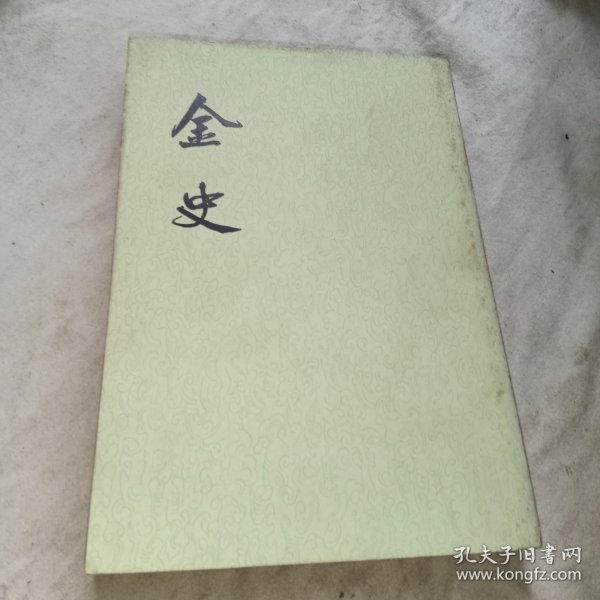 金史
孔夫子旧書网
www.kongfz.com